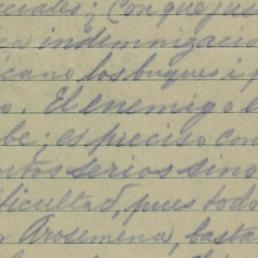 ciales; Con que jus
ca indemnizacio
icano los buques i p
o. El enemigo e
be; es preciso con
ntos serios sino
ificultad, pues todo
n Arosemena, basta